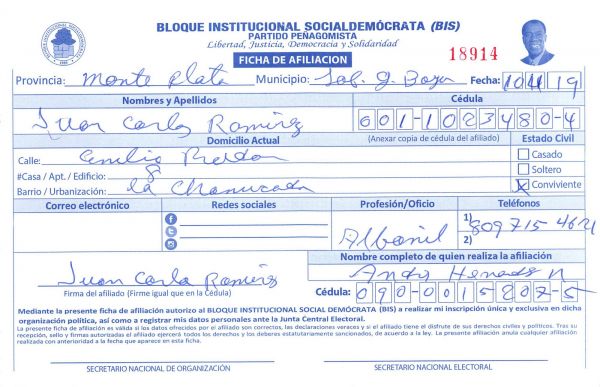 BLOQUE INSTITUCIONAL SOCIALDEMÓCRATA (BIS)
PARTIDO PEÑAGOMISTA
Libertad, Justicia, Democracia y Solidaridad
FICHA DE AFILIACION
18914
Provincia: Monte Plata Municipio: Sab. G. Boya Fecha: 10/4/19
Nombres y Apellidos Cédula
Juan Carlo Ramirez 001-1023480-4
Domicilio Actual (Anexar copia de cédula del afiliado) Estado Civil
Calle: Emilio
Casado
#Casa / Apt. / Edificio: 8
Soltero
Barrio / Urbanización: la
Conviviente
Correo electrónico Redes sociales Profesión/Oficio Teléfonos
Albañil
1) 809 715 4621
2)
Nombre completo de quien realiza la afiliación
Juan Carlo Ramirez
Firma del afiliado (Firme igual que en la Cédula)
Cédula: 090-0015807-5
Mediante la presente ficha de afiliación autorizo al BLOQUE INSTITUCIONAL SOCIAL DEMÓCRATA (BIS) a realizar mi inscripción única y exclusiva en dicha
organización política, así como a registrar mis datos personales ante la Junta Central Electoral.
La presente ficha de afiliación es válida si los datos ofrecidos por el afiliado son correctos, las declaraciones veraces y si el afiliado tiene el disfrute de sus derechos civiles y políticos. Tras su
recepción, sello y firmas autorizadas el afiliado ejercerá todos los derechos y los deberes estatutariamente sancionados, de acuerdo a la ley. La presente afiliación anula cualquier afiliación
realizada con anterioridad a la fecha que aparece en esta ficha.
SECRETARIO NACIONAL DE ORGANIZACIÓN SECRETARIO NACIONAL ELECTORAL